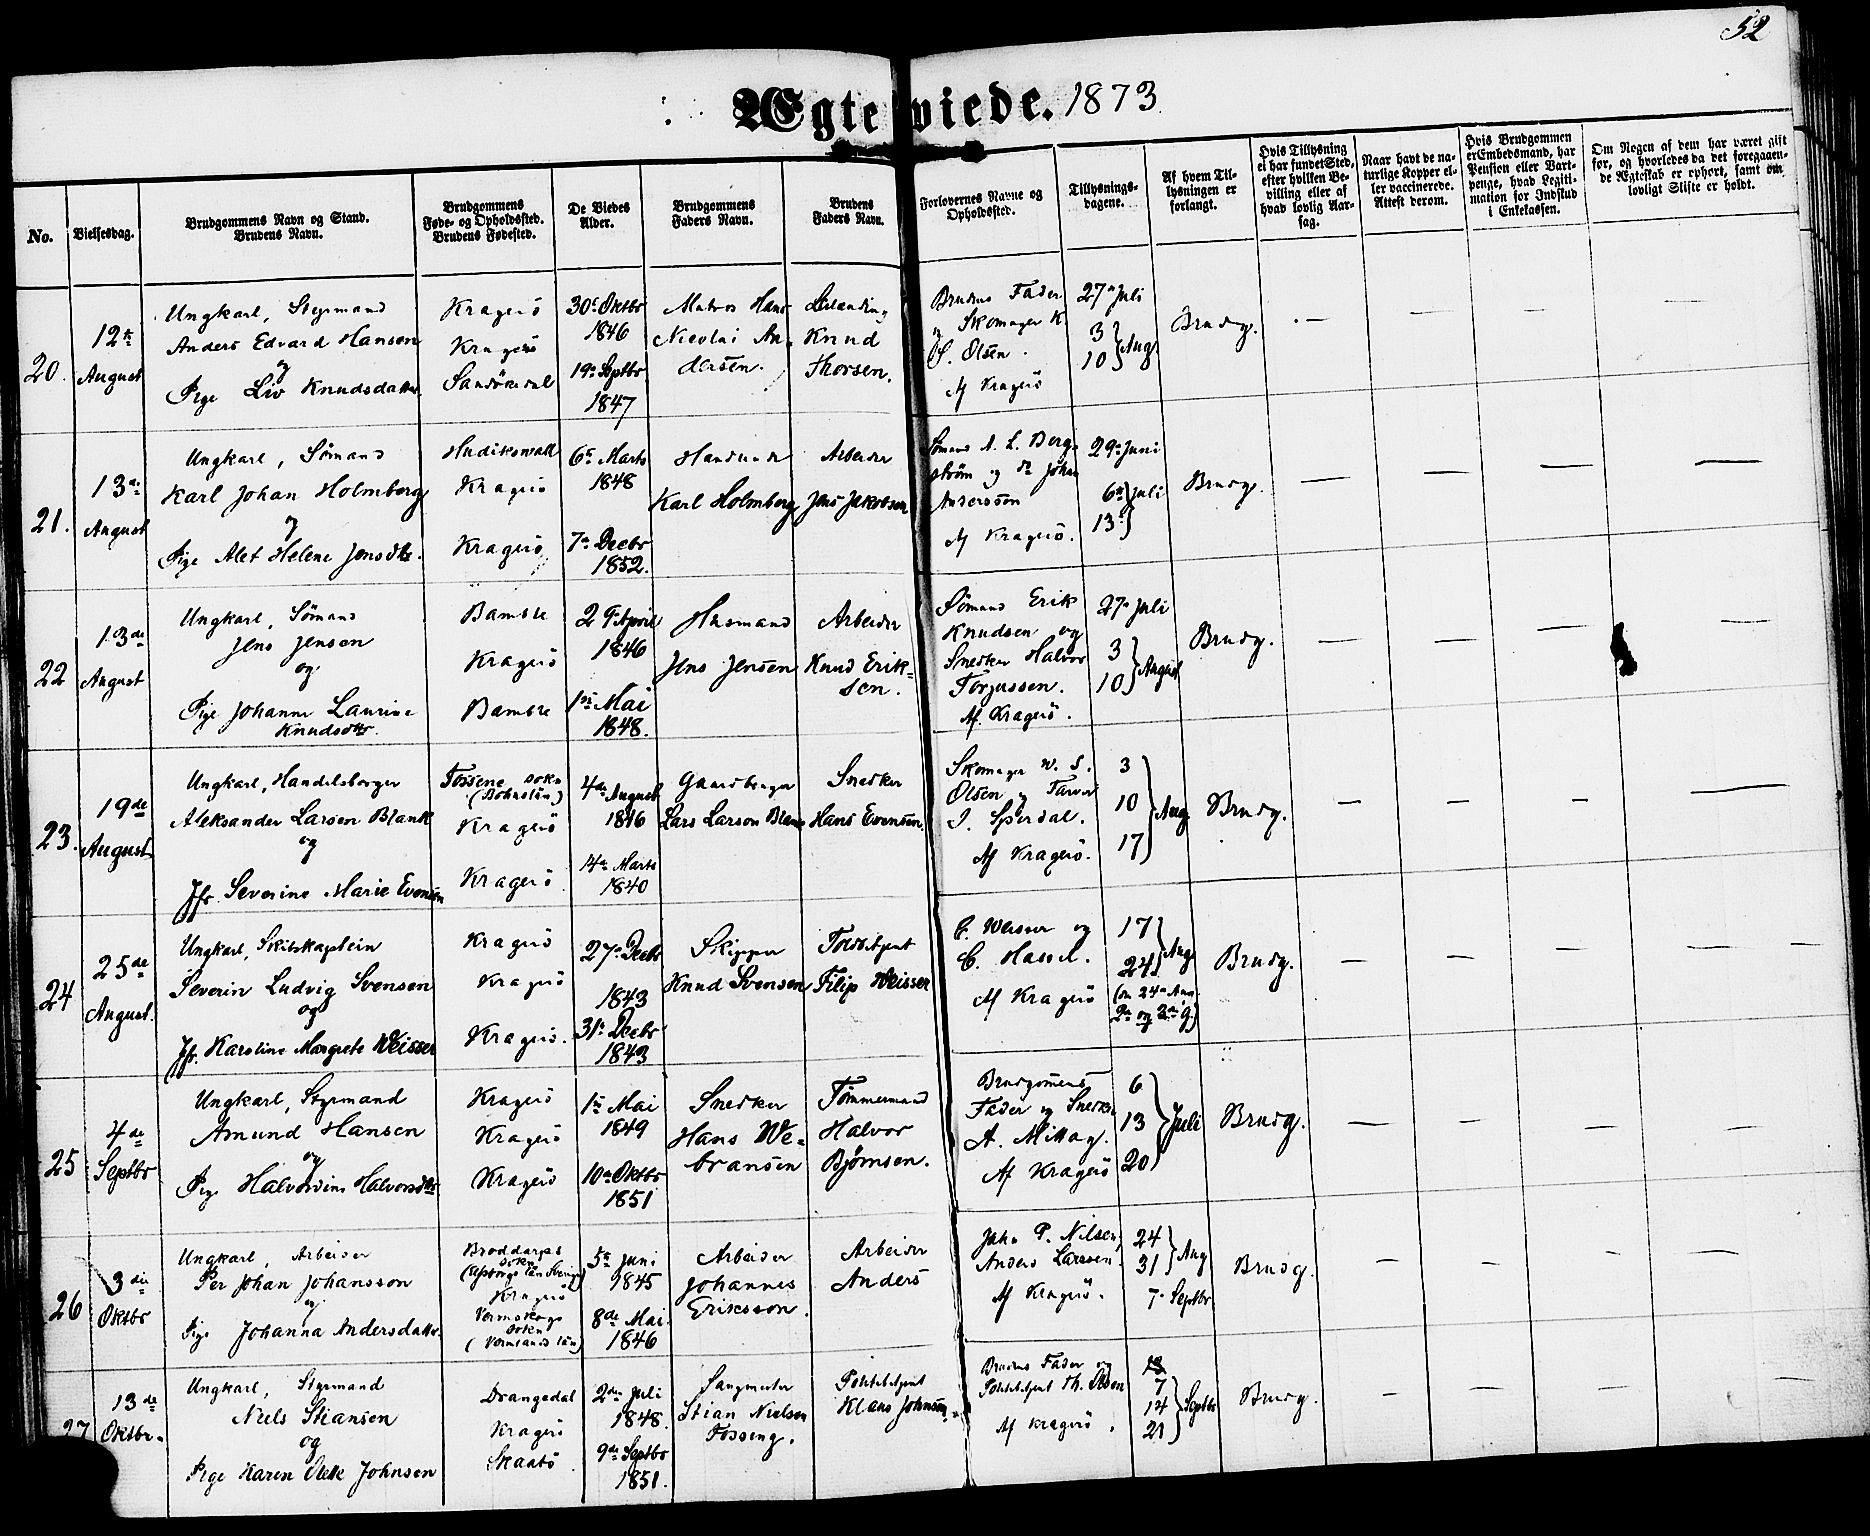 52
Ægteviede. 1873
No.
Vielsesdag.
Brudgommens Navn og Stand.
Brudens Navn.
Brudgommens
Føde- og Opholdssted.
Brudens Fødested.
De Viedes
Alder.
Brudgommens
Faders Navn.
Brudens
Faders Navn.
Forlovernes Navne og
Opholdssted.
Tillysnings-
dagene.
Af hvem Til-
lysningen er
forlangt.
Hvis Tillysning
ei har fundet Sted,
efter hvilken Be-
villing eller af
hvad lovlig Aar-
sag.
Naar havt de na-
turlige Kopper el-
ler vaccinerede.
Attest derom.
Hvis Brudgommen
er Embedsmand, har
Pension eller Vart-
penge, hvad Legiti-
mation for Indskud
i Enkekassen.
Om Nogen af dem har været gift
før, og hvorledes da det foregaaen-
de Ægteskab er ophørt, samt om
lovligt Skifte er holdt.
20.
12te
August
Ungkarl, Styrmand
Anders Edvard Hansen
og
Pige Liv Knudsdatter
Kragerø
Kragerø
Sandøkedal
30te Oktbr
1846
19de Septbr
1847
Matros Hans
Nicolai An-
dersen.
Knud
Thorsen.
Brudens Fader
og Skomager K.
Olsen.
Af Kragerø
27de Juli
3
10 } Aug.
Brudg.
21.
13de
August
Ungkarl, Sømand
Karl Johan Holmberg
og
Pige Alet Helene Jensdtr.
Hudikswall
Kragerø
Kragerø
6te Marts
1848
7de Decbr
1852.
Karl Holmberg
Arbeider
Jens Jakobsen
Sømand A. L. Berg-
strøm og do Johan
Andersson
Af Kragerø.
29de Juni
6te
13de } Juli
Brudg.
22
13de
August
Ungkarl, Sømand
Jens Jensen
og
Pige Johanne Laurine
Knudsdtr.
Bamble
Kragerø
Bamble
2 April
1846
1ste Mai
1848.
Husmand
Jens Jensen
Arbeider
Knud Erik-
sen.
Sømand Erik
Knudsen og
Snedker Halvor
Torjussen.
Af Kragerø.
27de Juli
3
10 } August
Brudg.
23.
19de
August
Ungkarl, Handelsborger
Aleksander Larsen Blank
og
Jfr. Severine Marie Evensen
Tossene sokn
(Bohuslän)
Kragerø
Kragerø
4de August
1846
14de Marts
1840
Gaardbruger
Lars Larson Blank
Snedker
Hans Evensen.
Skomager W. S.
Olsen og Farver
Af Kragerø.
3
10
17 } Aug
Brudg.
24
25de
August.
Ungkarl, Skibskaptein
Severin Ludvig Svensen
og
Jfr. Karoline Margrete Weisser
Kragerø
Kragerø
Kragerø.
27de Decbr
1843
31te Decbr
1843
Skipper
Knud Svensen
Toldbetjent
Filip Weisser
C. Weisser og
C. Hassel.
Af Kragerø
17
24 } Aug
(den 24de Aug.
2den og 3die G.)
Brudg.
25
4de
Septbr
Ungkarl, Styrmand
Amund Hansen
og
Pige Halvordine Halvorsdtr
Kragerø
Kragerø
Kragerø
1ste Mai
1849
10de Oktbr
1851
Snedker
Hans We-
bransen
Tømmermand
Halvor
Bjørnsen.
Brudgommens
Fader og Snedker
A. Mittag.
Af Kragerø
6
13
20 } Juli
Brudg.
26
3die
Oktbr
Ungkarl, Arbeider
Per Johan Johansson
og
Pige Johanna Andersdatter
Broddarps
sokn
(Elfsborgs län Sverige)
Kragerø
Vermskogs
sokn
(Vermlands län)
5te Juni
1845
8de Mai
1846
Arbeider
Johannes
Eriksson.
Arbeider
Anders
John P. Nilsen,
Anders Larssen.
Af Kragerø.
24
31 } Aug
7de Septbr
Brudg.
27
13de
Oktbr.
Ungkarl, Styrmand
Niels Stiansen
og
Pige Karen Olette Johnsen
Drangedal
Kragerø
Skaatø
2den Juli
1848.
9de Septbr
1851.
Sangmester
Stian Nielsen
Fossing.
Politibetjent
Klaus Johnsen
Brudens Fader og
Politibetjent Th. Olsen
Af Kragerø.
7
14
21 } Septbr
Brudg.